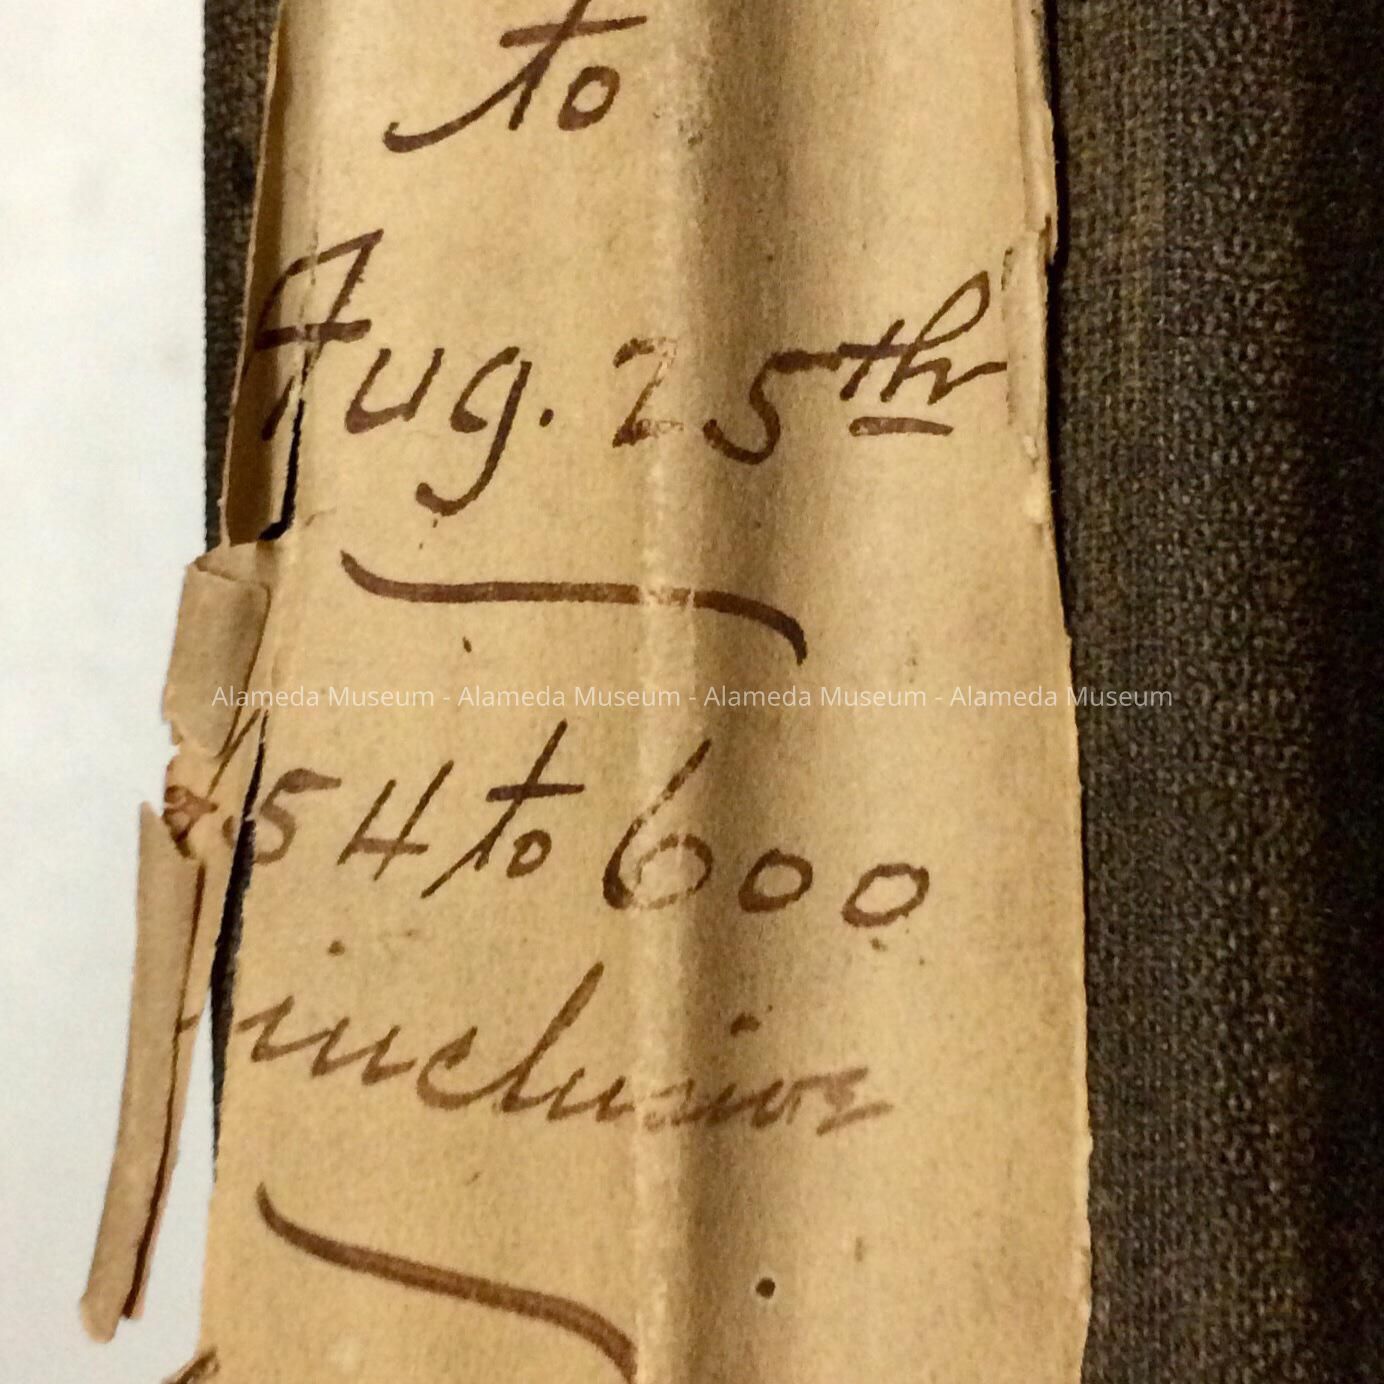 to
Aug. 25th
Alameda Museum - Alameda Museum - Alameda Museum - Alameda Museum
54 to 600
inclusive